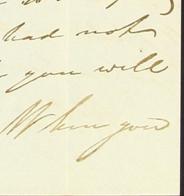 had not
you will
When you